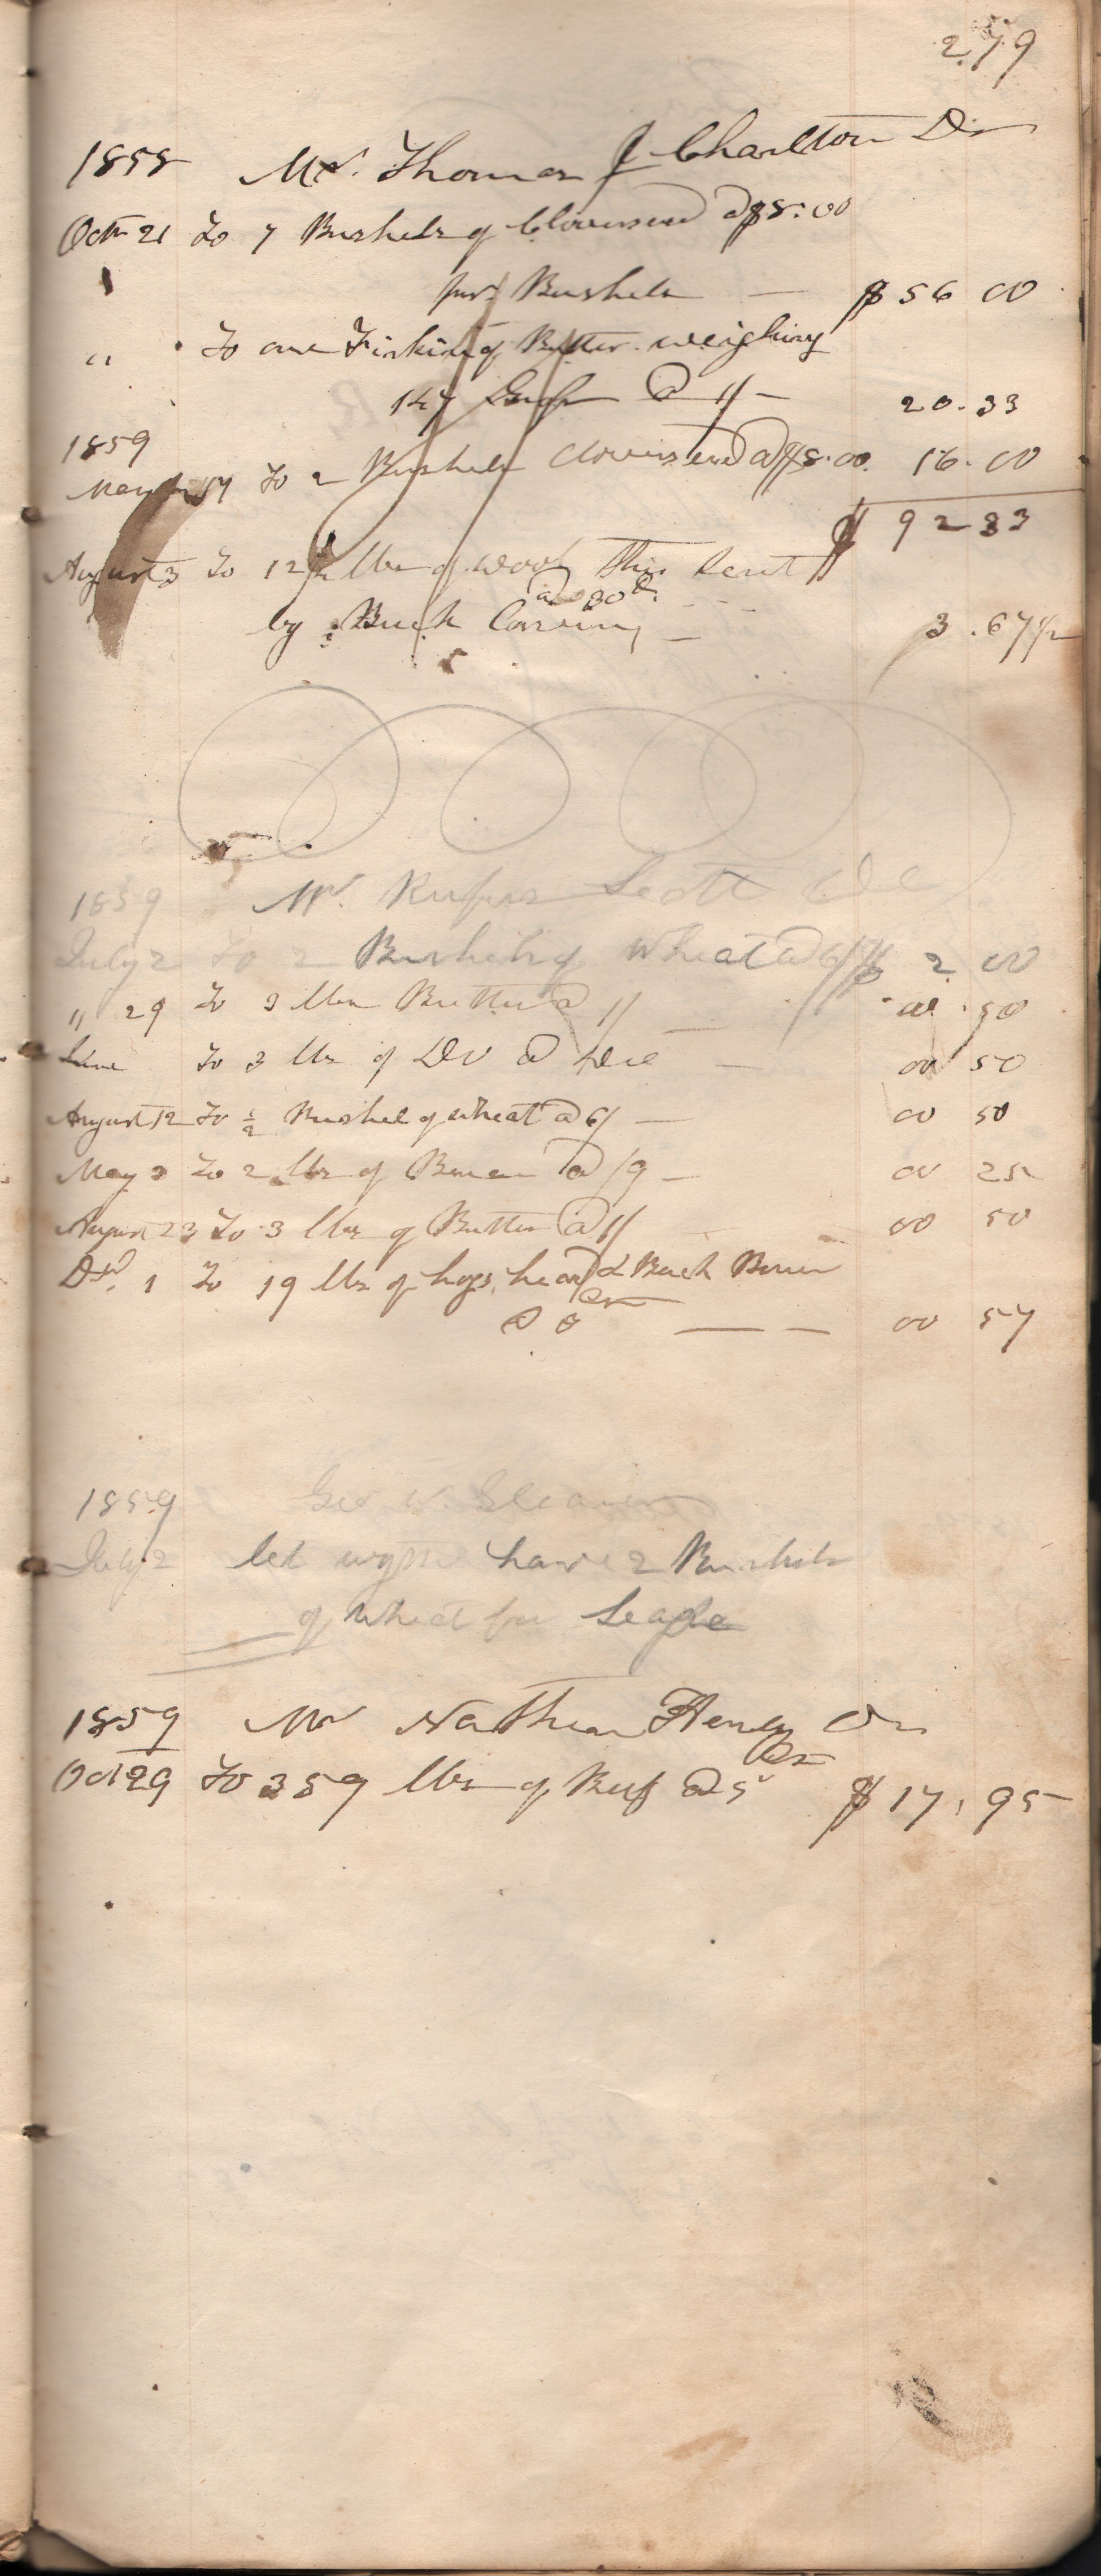 279
1858 Mr. Thomas J Charlton Dr
Octr 21 To 7 Bushels of Cloverseed @ $8.00
per Bushels — $56 00
" To one Firkin of Butter weighing
147 @ 1/ — 20.33
1859
March 17 To 2 Bushels cloverseed @ $8.00. 16.00
$ 92 33
August 3 To 12 1/4 lbs of wool this sent
@ 30 c.
by Buck — 3.67 1/2
1859 Mr. Rufus Scott
July 2 To 2 Bushels of Wheat @ 6/ $ 2 00
" 29 To 3 lbs Butter @ 1/ — 00.50
June To 3 lbs of Do @ — 00 50
August 12 To 1/2 Bushel of wheat @ 6/ — 00 50
May 3 To 2 lbs of Bacon @ /9 — 00 25
August 23 To 3 lbs of Butter @ 1/ 00 50
1 To 19 lbs of hogs head & Back Bones
@ 3 cts — — 00 57
1859 Geo W.
July 2 let have 2 Bushels
of Wheat for
1859 Mr Nathan Henly Dr
Oct 29 To 359 lbs of Beef @ 5 cts $17.95